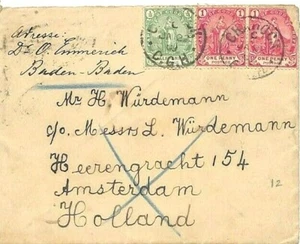 Adresse:
Dr O. Emmerich
Baden-Baden
Mr H. Würdemann
c/o Messrs L. Würdemann
Heerengracht 154
Amsterdam
Holland
12
ONE PENNY
ONE PENNY